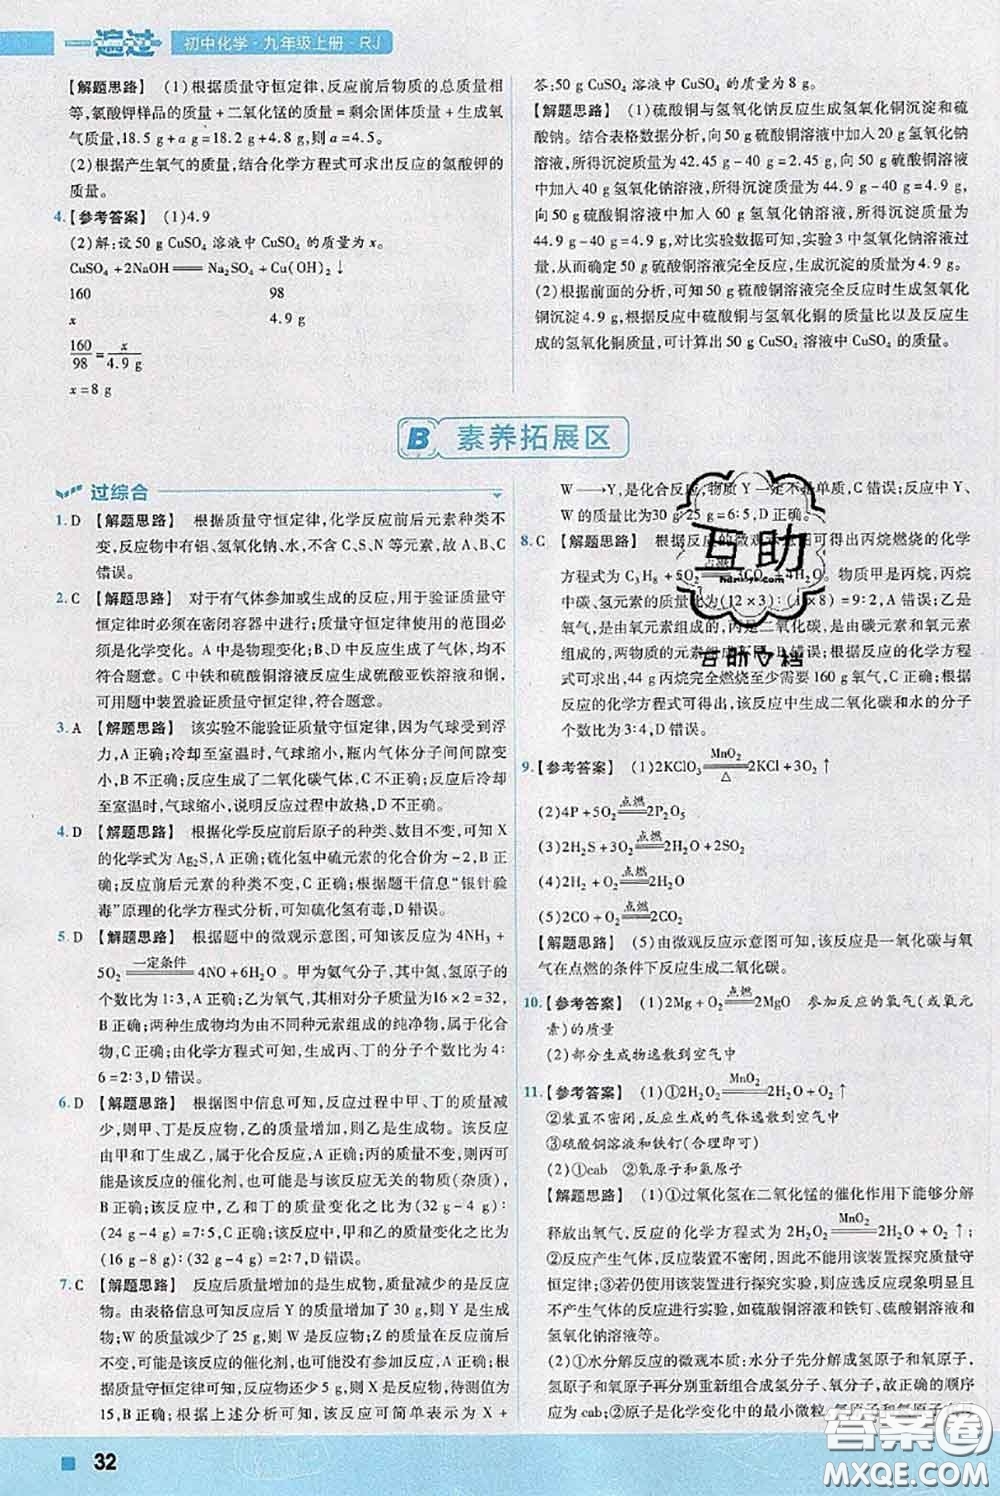 一遍过 初中化学·九年级上册·RJ
【解题思路】 (1)根据质量守恒定律,反应前后物质的总质量相
等,氯酸钾样品的质量+二氧化锰的质量=剩余固体质量+生成氧
气质量,18.5 g+a g=18.2 g+4.8 g,则 a=4.5。
(2)根据产生氧气的质量,结合化学方程式可求出反应的氯酸钾的
质量。
4.【参考答案】 (1)4.9
(2)解:设50 g CuSO₄ 溶液中 CuSO₄ 的质量为 x。
CuSO₄+2NaOH══Na₂SO₄+Cu(OH)₂↓
160 98
x 4.9 g
160/98=x/4.9 g
x=8 g
答:50 g CuSO₄ 溶液中 CuSO₄ 的质量为 8 g。
【解题思路】 (1)硫酸铜与氢氧化钠反应生成氢氧化铜沉淀和硫
酸钠。结合表格数据分析,向50 g硫酸铜溶液中加入20 g氢氧化钠
溶液,所得沉淀质量为 42.45 g-40 g=2.45 g,向50 g硫酸铜溶液
中加入40 g氢氧化钠溶液,所得沉淀质量为 44.9 g-40 g=4.9 g,
向50 g硫酸铜溶液中加入60 g氢氧化钠溶液,所得沉淀质量为
44.9 g-40 g=4.9 g,对比实验数据可知,实验3中氢氧化钠溶液过
量,从而确定50 g硫酸铜溶液完全反应,生成沉淀的质量为4.9 g。
(2)根据前面的分析,可知50 g硫酸铜溶液完全反应时生成氢氧化
铜沉淀4.9 g,根据反应中硫酸铜与氢氧化铜的质量比以及反应生
成的氢氧化铜质量,可计算出50 g CuSO₄ 溶液中 CuSO₄ 的质量。
B 素养拓展区
过综合
1. D 【解题思路】 根据质量守恒定律,化学反应前后元素种类不
变,反应物中有铝、氢氧化钠、水,不含C、S、N等元素,故A、B、C
错误。
2. C 【解题思路】 对于有气体参加或生成的反应,用于验证质量守
恒定律时必须在密闭容器中进行;质量守恒定律使用的范围必
须是化学变化。A中是物理变化;B、D反应生成了气体,均不
符合题意。C中铁和硫酸铜溶液反应生成硫酸亚铁溶液和铜,
可用题中装置验证质量守恒定律,符合题意。
3. A 【解题思路】 该实验不能验证质量守恒定律,因为气球受到浮
力,A正确;冷却至室温时,气球缩小,瓶内气体分子间间隙变
小,B错误;反应生成了二氧化碳气体,C错误;反应后冷却
至室温时,气球缩小,说明反应过程中放热,D错误。
4. D 【解题思路】 根据化学反应前后原子的种类、数目不变,可知X
的化学式为Ag₂S,A正确;硫化氢中硫元素的化合价为-2,B正
确;反应前后元素的种类不变,C正确;根据题干信息“银针验
毒”原理的化学方程式分析,可知硫化氢有毒,D错误。
5. D 【解题思路】 根据题中的微观示意图,可知该反应为4NH₃+
5O₂══一定条件══4NO+6H₂O。甲为氨气分子,其中氮、氢原子的
个数比为1:3,A正确;乙为氧气,其相对分子质量为16×2=32,
B正确;两种生成物均为由不同种元素组成的纯净物,属于化合
物,C正确;由化学方程式可知,生成丙、丁的分子个数之比为4:
6=2:3,D错误。
6. D 【解题思路】 根据图中信息可知,反应过程中甲、丁的质量减
少,则甲、丁是反应物,乙的质量增加,则乙是生成物。该反应
由甲和丁生成乙,属于化合反应,A正确;丙的质量不变,可能是
该反应的催化剂,也可能是与该反应无关的物质(杂质),B正
确;该反应中,乙和丁的质量变化之比为(32 g-4 g):
(24 g-4 g)=7:5,C正确;该反应中,甲和乙的质量变化之比为
(16 g-8 g):(32 g-4 g)=2:7,D错误。
7. C 【解题思路】 反应后质量增加的是生成物,质量减少的是反应
物。由表格信息可知反应后Y的质量增加了30 g,则Y是生成
物;W的质量减少了25 g,则W是反应物;Z的质量在反应前后
不变,可能是该反应的催化剂,也可能没有参加该反应,B正确;
根据质量守恒定律可知,X减少5 g,则X是反应物,待测值为
15,B正确;根据上述分析可知,该反应可简单表示为X+
W─→Y,是化合反应,物质Y一定不是单质,C错误;反应中Y、
W的质量比为30 g:25 g=6:5,D正确。
8. C 【解题思路】 根据反应的微观示意图可得出丙烷燃烧的化学
方程式为C₃H₈+5O₂══点燃══3CO₂+4H₂O。物质甲是丙烷,丙烷
中碳、氢元素的质量比为(12×3):(1×8)=9:2,A正确;乙是
氧气,是由氧元素组成的,丙是二氧化碳,是由碳元素和氧元素
组成的,两物质的元素组成不同,B错误;根据反应的化学方程
式可求出,44 g丙烷完全燃烧至少需要160 g氧气,C正确;根据
反应的化学方程式可得出,该反应中生成二氧化碳和水的分子
个数比为3:4,D错误。
9.【参考答案】 (1)2KClO₃══MnO₂/△══2KCl+3O₂↑
(2)4P+5O₂══点燃══2P₂O₅
(3)2H₂S+3O₂══点燃══2H₂O+2SO₂
(4)2H₂+O₂══点燃══2H₂O
(5)2CO+O₂══点燃══2CO₂
【解题思路】 (5)由微观反应示意图可知,该反应是一氧化碳与氧
气在点燃的条件下反应生成二氧化碳。
10.【参考答案】 (1)2Mg+O₂══点燃══2MgO 参加反应的氧气(或氧元
素)的质量
(2)部分生成物逸散到空气中
11.【参考答案】 (1)①2H₂O₂══MnO₂══2H₂O+O₂↑
②装置不密闭,反应生成的气体逸散到空气中
③硫酸铜溶液和铁钉(合理即可)
(2)①cab ②氧原子和氢原子
【解题思路】 (1)①过氧化氢在二氧化锰的催化作用下能够分解
释放出氧气,反应的化学方程式为2H₂O₂══MnO₂══2H₂O+O₂↑;
②反应产生气体,该装置不密闭,因此不能用该装置探究质量守
恒定律;③若仍使用该装置进行探究实验,则应选反应现象明显且
不产生气体的反应进行实验,如硫酸铜溶液和铁钉、硫酸铜溶液和
氢氧化钠溶液等。
(2)①水分解反应的微观本质:水分子先分解成氢原子和氧原子,
氢原子和氧原子再分别重新组合成氢分子、氧分子,故正确的顺序
应为cab;②原子是化学变化中的最小微粒,
互助
互助文档
答案圈
MXQE.COM
32